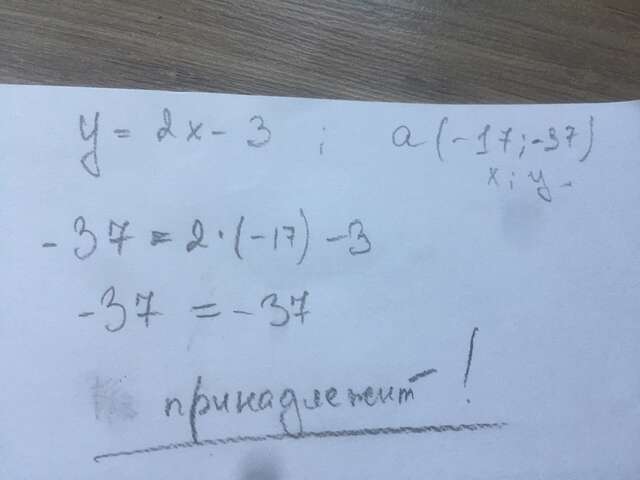 y = 2x - 3 ; a(-17;-37)
x ; y -
-37 = 2·(-17) -3
-37 = -37
принадлежит !